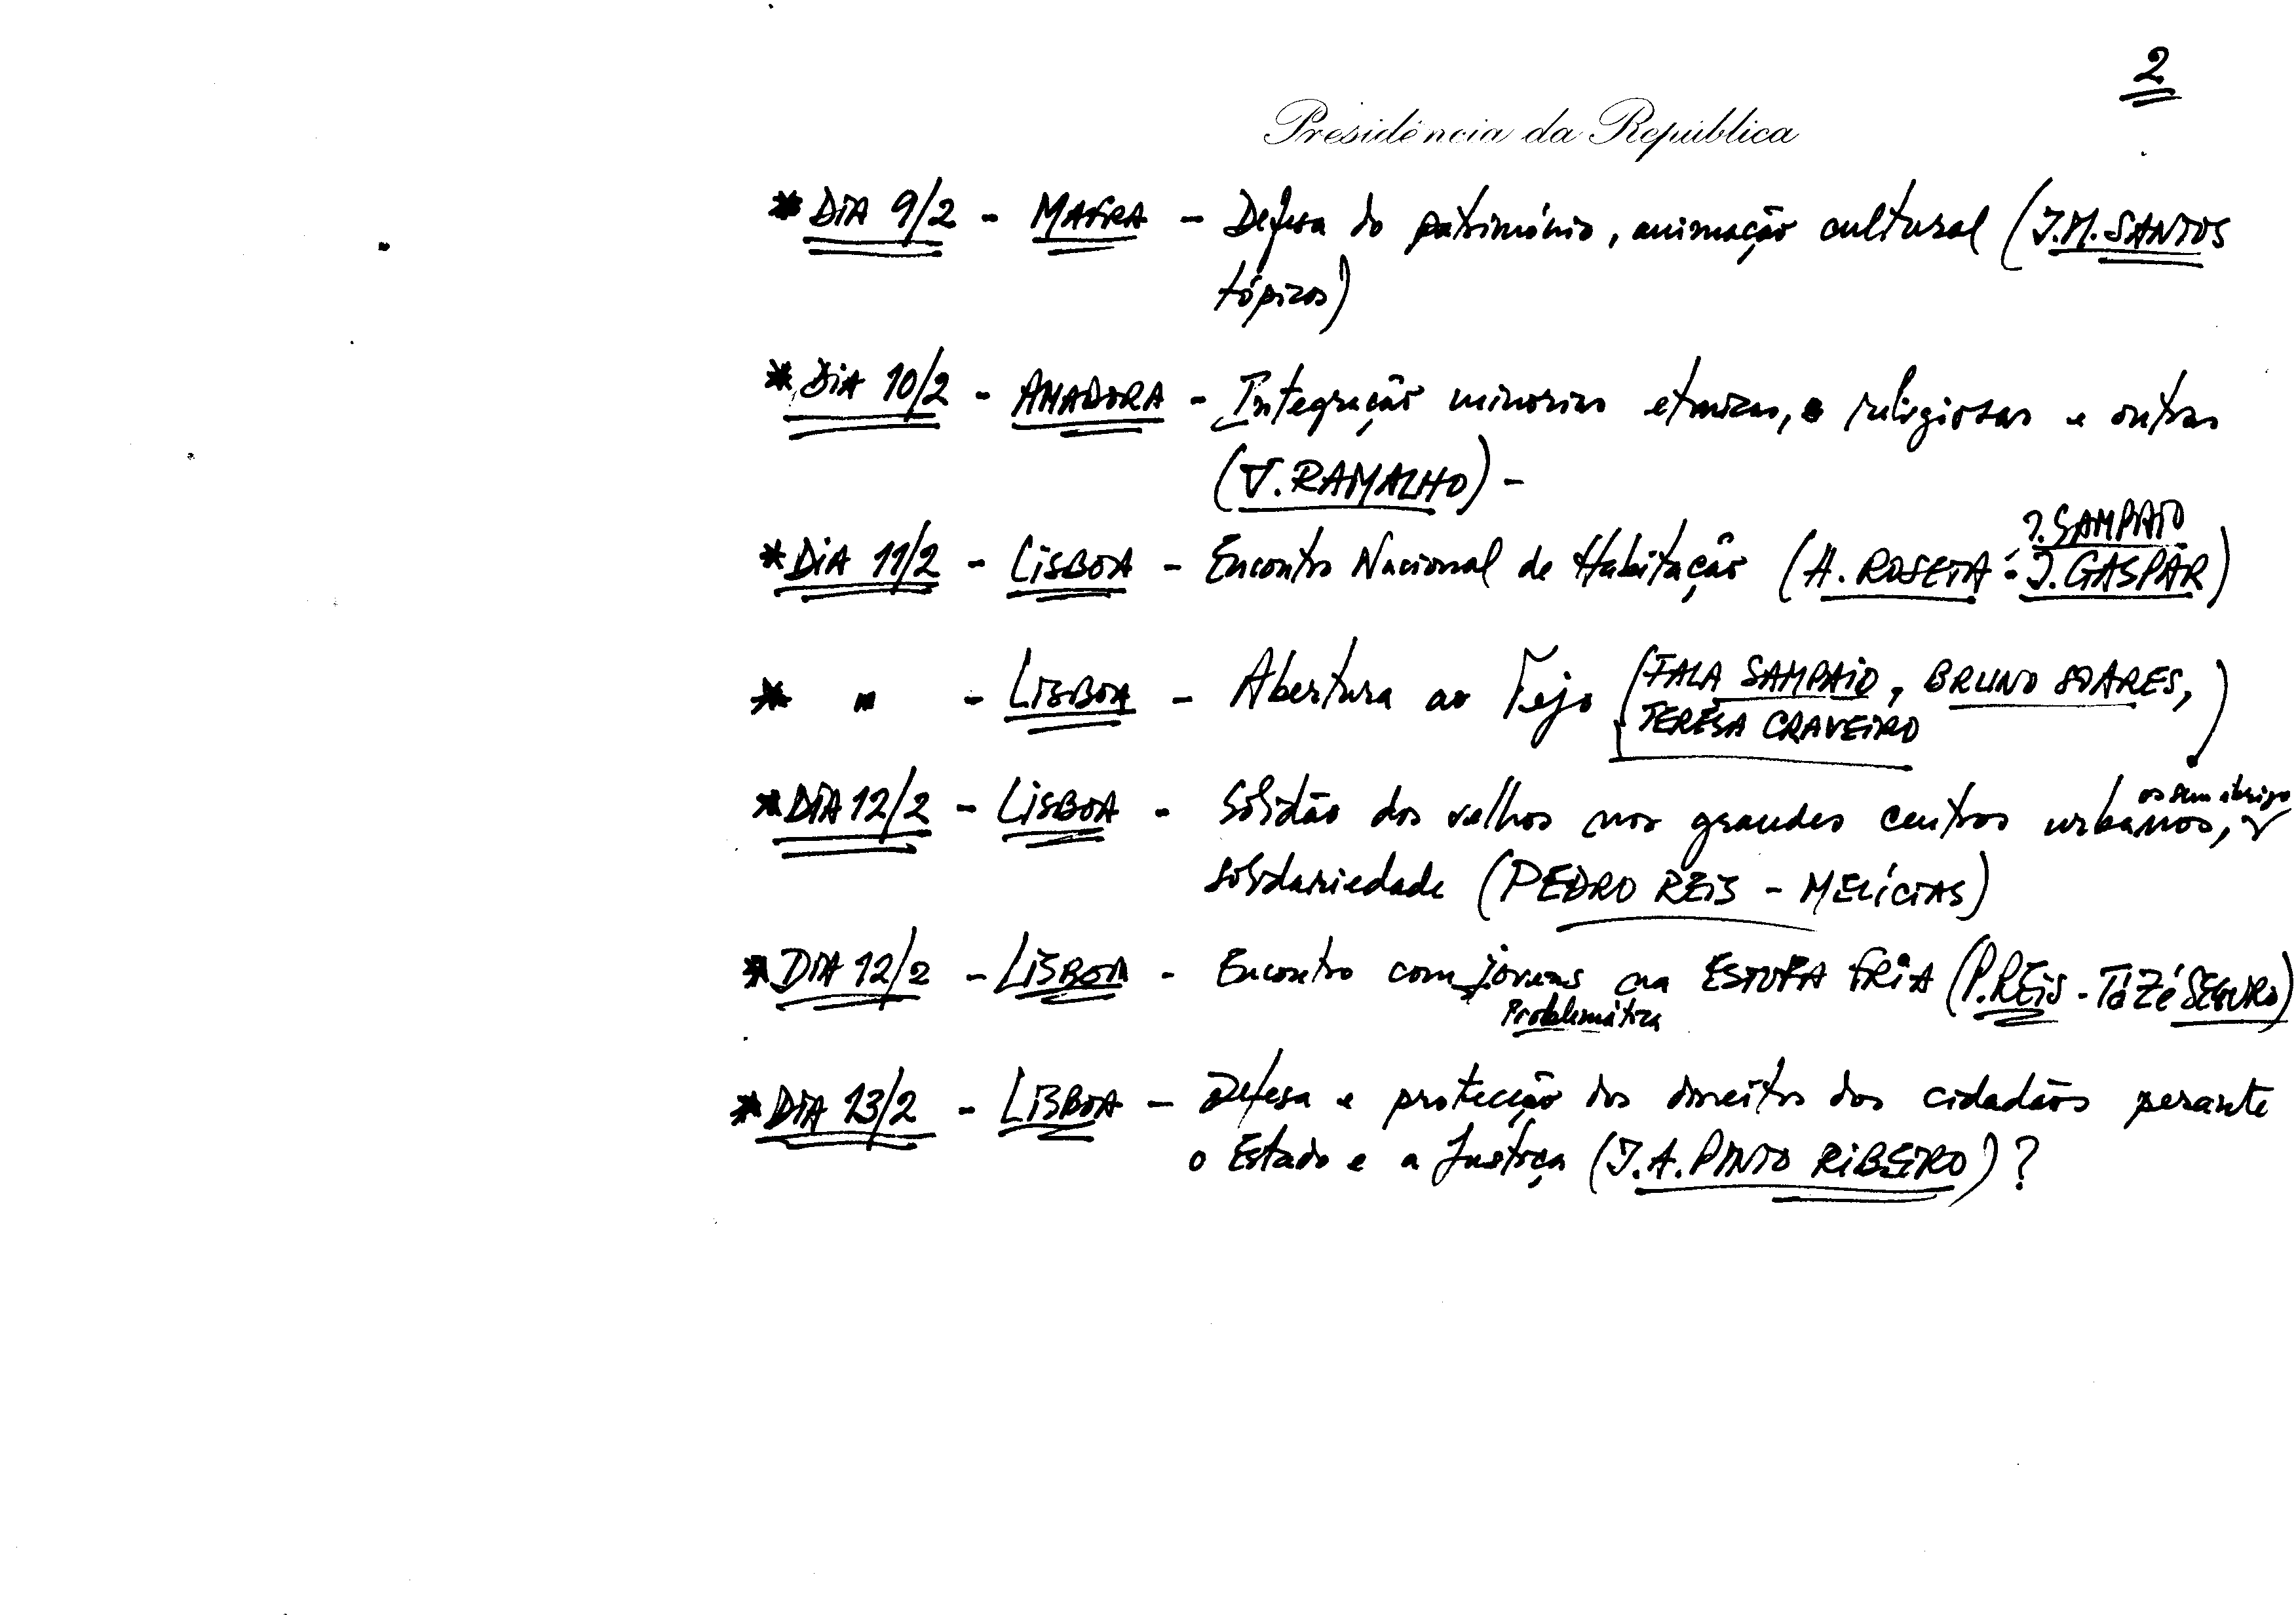 2
Presidência da República
* DIA 9/2 - MAFRA - Defesa do património, animação cultural (J.M. SANTOS
tópicos)
* DIA 10/2 - AMADORA - Integração minorias etnicas, religiosas e outras
(V. RAMALHO) -
J. SAMPAIO
* DIA 11/2 - LISBOA - Encontro Nacional de Habitação (H. ROSETA - J. GASPAR)
* " - LISBOA - Abertura ao Tejo (FALA SAMPAIO, BRUNO SOARES,
TERESA CRAVEIRO)
os sem abrigo
* DIA 12/2 - LISBOA - Solidão dos velhos nos grandes centros urbanos,
solidariedade (PEDRO REIS - MELÍCIAS)
* DIA 12/2 - LISBOA - Encontro com jovens na ESTUFA FRIA (P. REIS - TóZé SEGURO)
Problemática
* DIA 13/2 - LISBOA - Defesa e protecção dos direitos dos cidadãos perante
o Estado e a Justiça (J.A. PINTO RIBEIRO) ?